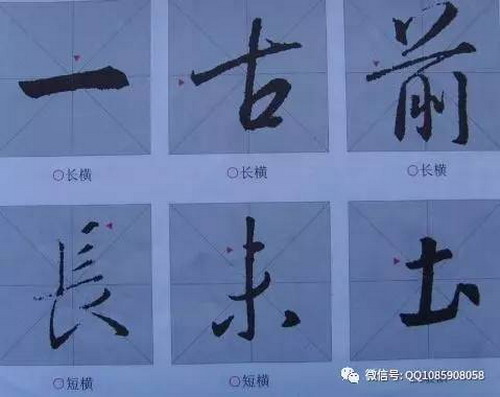 一 古 前
○长横 ○长横 ○长横
長 未 土
○短横 ○短横
微信号: QQ1085908058